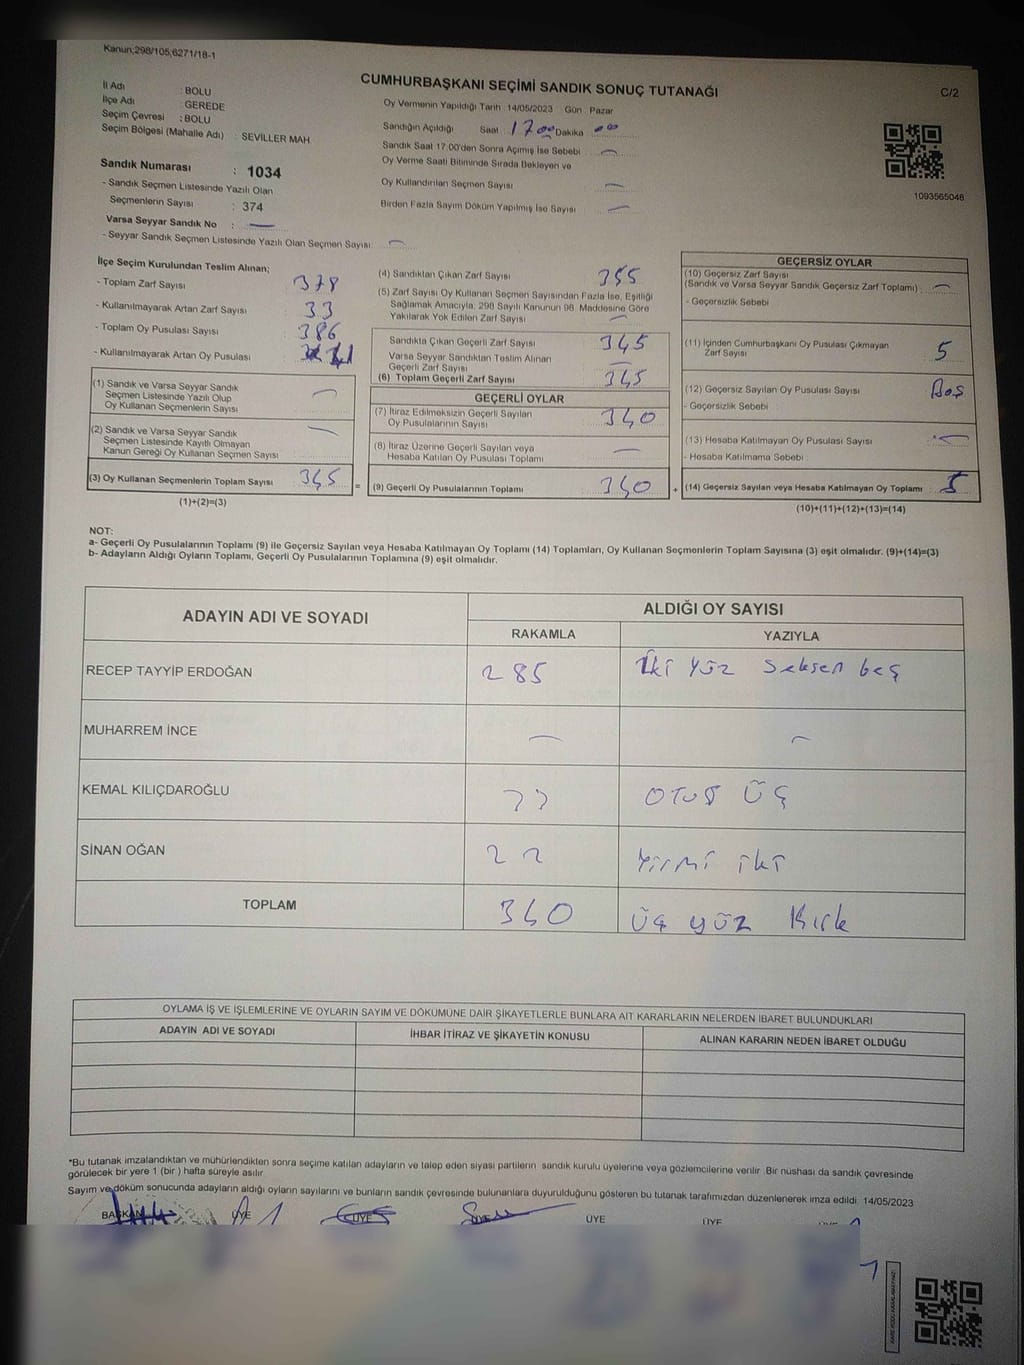 Kanun;298/105;6271/18-1
CUMHURBAŞKANI SEÇİMİ SANDIK SONUÇ TUTANAĞI
C/2
İl Adı : BOLU
İlçe Adı : GEREDE
Seçim Çevresi : BOLU
Seçim Bölgesi (Mahalle Adı) : SEVİLLER MAH
Oy Vermenin Yapıldığı Tarih : 14/05/2023 Gün : Pazar
Sandığın Açıldığı Saat 17 00 Dakika 00
Sandık Saat 17:00'den Sonra Açımış İse Sebebi : —
Oy Verme Saati Bitiminde Sırada Bekleyen ve
Oy Kullandırılan Seçmen Sayısı —
Birden Fazla Sayım Döküm Yapılmış İse Sayısı —
1093565048
Sandık Numarası : 1034
- Sandık Seçmen Listesinde Yazılı Olan
Seçmenlerin Sayısı : 374
Varsa Seyyar Sandık No : —
- Seyyar Sandık Seçmen Listesinde Yazılı Olan Seçmen Sayısı: —
İlçe Seçim Kurulundan Teslim Alınan;
- Toplam Zarf Sayısı : 378
- Kullanılmayarak Artan Zarf Sayısı : 33
- Toplam Oy Pusulası Sayısı : 386
- Kullanılmayarak Artan Oy Pusulası : 41
(1) Sandık ve Varsa Seyyar Sandık
Seçmen Listesinde Yazılı Olup
Oy Kullanan Seçmenlerin Sayısı : —
(2) Sandık ve Varsa Seyyar Sandık
Seçmen Listesinde Kayıtlı Olmayan
Kanun Gereği Oy Kullanan Seçmen Sayısı : —
(3) Oy Kullanan Seçmenlerin Toplam Sayısı : 345 =
(1)+(2)=(3)
(4) Sandıktan Çıkan Zarf Sayısı : 345
(5) Zarf Sayısı Oy Kullanan Seçmen Sayısından Fazla İse, Eşitliği
Sağlamak Amacıyla; 298 Sayılı Kanunun 98. Maddesine Göre
Yakılarak Yok Edilen Zarf Sayısı : —
Sandıkta Çıkan Geçerli Zarf Sayısı : 345
Varsa Seyyar Sandıktan Teslim Alınan
Geçerli Zarf Sayısı : —
(6) Toplam Geçerli Zarf Sayısı : 345
GEÇERLİ OYLAR
(7) İtiraz Edilmeksizin Geçerli Sayılan
Oy Pusulalarının Sayısı : 340
(8) İtiraz Üzerine Geçerli Sayılan veya
Hesaba Katılan Oy Pusulası Toplamı : —
(9) Geçerli Oy Pusulalarının Toplamı : 340 +
GEÇERSİZ OYLAR
(10) Geçersiz Zarf Sayısı
(Sandık ve Varsa Seyyar Sandık Geçersiz Zarf Toplamı) : —
- Geçersizlik Sebebi :
(11) İçinden Cumhurbaşkanı Oy Pusulası Çıkmayan
Zarf Sayısı : 5
(12) Geçersiz Sayılan Oy Pusulası Sayısı : Boş
- Geçersizlik Sebebi :
(13) Hesaba Katılmayan Oy Pusulası Sayısı : —
- Hesaba Katılmama Sebebi :
(14) Geçersiz Sayılan veya Hesaba Katılmayan Oy Toplamı : 5
(10)+(11)+(12)+(13)=(14)
NOT:
a- Geçerli Oy Pusulalarının Toplamı (9) ile Geçersiz Sayılan veya Hesaba Katılmayan Oy Toplamı (14) Toplamları, Oy Kullanan Seçmenlerin Toplam Sayısına (3) eşit olmalıdır. (9)+(14)=(3)
b- Adayların Aldığı Oyların Toplamı, Geçerli Oy Pusulalarının Toplamına (9) eşit olmalıdır.
ADAYIN ADI VE SOYADI ALDIĞI OY SAYISI
RAKAMLA YAZIYLA
RECEP TAYYİP ERDOĞAN 285 İki yüz seksen beş
MUHARREM İNCE — —
KEMAL KILIÇDAROĞLU 33 OTUZ ÜÇ
SİNAN OĞAN 22 Yirmi iki
TOPLAM 340 Üç yüz Kırk
OYLAMA İŞ VE İŞLEMLERİNE VE OYLARIN SAYIM VE DÖKÜMÜNE DAİR ŞİKAYETLERLE BUNLARA AİT KARARLARIN NELERDEN İBARET BULUNDUKLARI
ADAYIN ADI VE SOYADI İHBAR İTİRAZ VE ŞİKAYETİN KONUSU ALINAN KARARIN NEDEN İBARET OLDUĞU
*Bu tutanak imzalandıktan ve mühürlendikten sonra seçime katılan adayların ve talep eden siyasi partilerin sandık kurulu üyelerine veya gözlemcilerine verilir. Bir nüshası da sandık çevresinde
görülecek bir yere 1 (bir ) hafta süreyle asılır.
Sayım ve döküm sonucunda adayların aldığı oyların sayılarını ve bunların sandık çevresinde bulunanlara duyurulduğunu gösteren bu tutanak tarafımızdan düzenlenerek imza edildi. 14/05/2023
BAŞKAN ÜYE ÜYE ÜYE ÜYE ÜYE